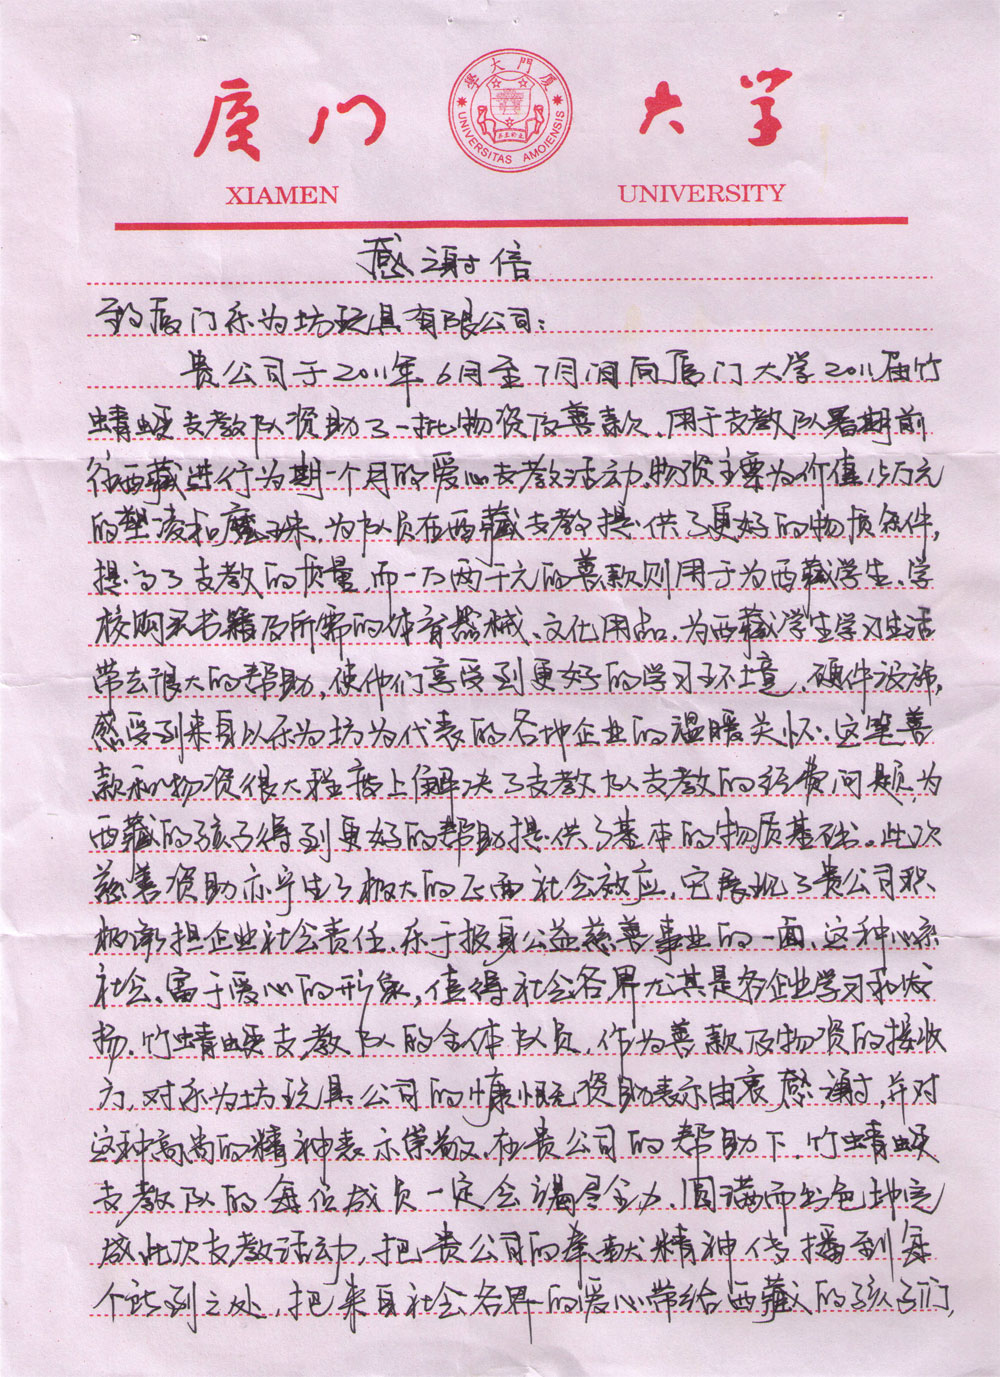 厦门 大学
廈門大學
UNIVERSITAS AMOIENSIS
XIAMEN UNIVERSITY
感谢信
致厦门乐为坊玩具有限公司:
贵公司于2011年6月至7月间向厦门大学2011届竹
蜻蜓支教队资助了一批物资及善款,用于支教队暑期前
往西藏进行为期一个月的爱心支教活动,物资主要为价值1.5万元
的塑凌和魔珠,为队员在西藏支教提供了更好的物质条件,
提高了支教的质量,而一万两千元的善款则用于为西藏学生、学
校购买书籍及所需的体育器械、文化用品,为西藏学生学习生活
带去很大的帮助,使他们享受到更好的学习环境、硬件设施,
感受到来自以乐为坊为代表的各地企业的温暖关怀。这笔善
款和物资很大程度上解决了支教队支教的经费问题,为
西藏的孩子得到更好的帮助提供了基本的物质基础。此次
慈善资助亦产生了极大的正面社会效应,它展现了贵公司积
极承担企业社会责任、乐于投身公益慈善事业的一面,这种心系
社会、富于爱心的形象,值得社会各界尤其是各企业学习和发
扬。竹蜻蜓支教队的全体队员,作为善款及物资的接收
方,对乐为坊玩具公司的慷慨资助表示由衷感谢,并对
这种高尚的精神表示崇敬。在贵公司的帮助下,竹蜻蜓
支教队的每位成员一定会竭尽全力,圆满而出色地完
成此次支教活动,把贵公司的奉献精神传播到每
个所到之处,把来自社会各界的爱心带给西藏的孩子们,